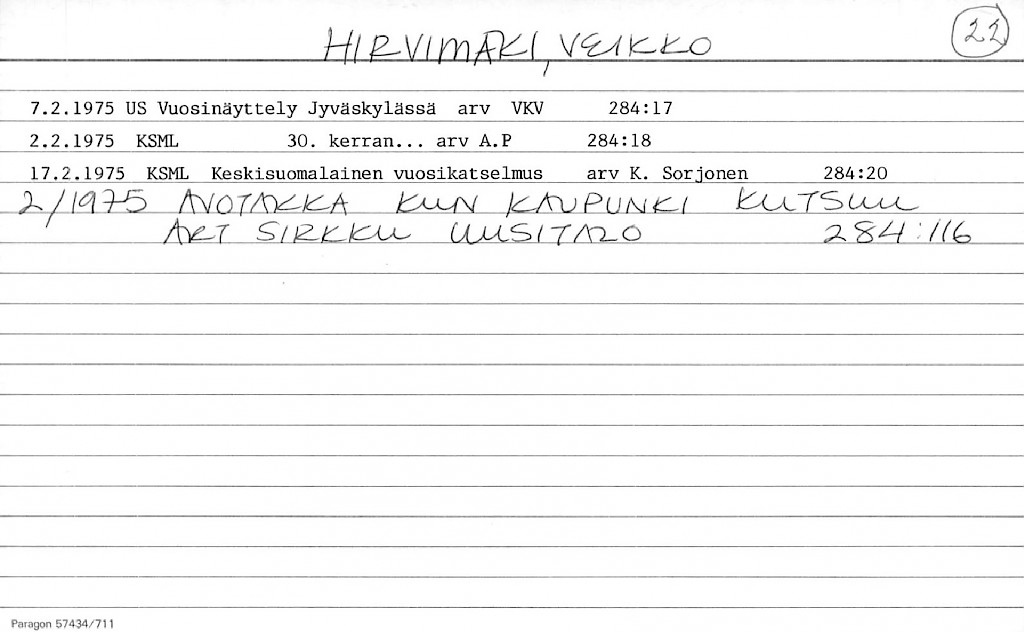 22
HIRVIMÄKI, VEIKKO
7.2.1975 US Vuosinäyttely Jyväskylässä arv VKV 284:17
2.2.1975 KSML 30. kerran... arv A.P 284:18
17.2.1975 KSML Keskisuomalainen vuosikatselmus arv K. Sorjonen 284:20
2/1975 AVOTAKKA KUN KAUPUNKI KUTSUU
ART SIRKKU UUSITALO 284:116
Paragon 57434/711